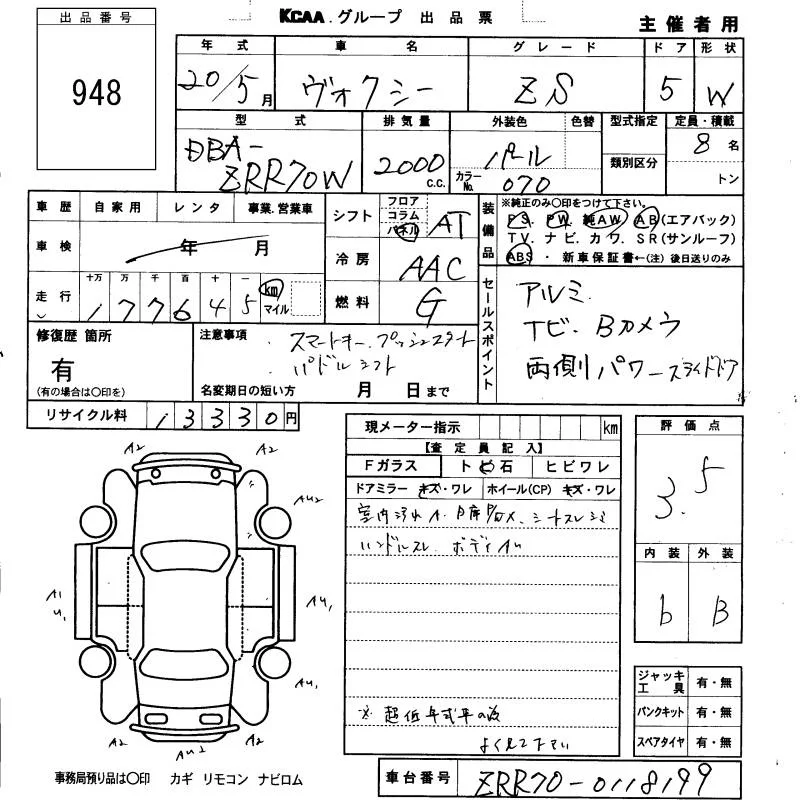 出品番号
948
KCAA.グループ 出品票
主催者用
年式 車名 グレード ドア 形状
20/5月 ヴォクシー ZS 5 W
型式 排気量 外装色 色替 型式指定 定員・積載
DBA-ZRR70W 2000 c.c. パール 8名
カラーNo. 070 類別区分 トン
車歴 自家用 レンタ 事業.営業車
シフト フロア コラム パネル AT
装備品
※純正のみ〇印をつけて下さい。
PS. PW. 純AW. AB(エアバック)
TV. ナビ. カワ. SR(サンルーフ)
ABS ・ 新車保証書←(注)後日送りのみ
車検 年 月
冷房 AAC
走行 十万 万 千 百 十 一
177645 km マイル
燃料 G
セールスポイント
アルミ.
ナビ. Bカメラ
両側パワースライドドア
修復歴 箇所
有
(有の場合は〇印を)
注意事項
スマートキー.プッシュスタート
パドルシフト
名変期日の短い方 月 日まで
リサイクル料 13330円
現メーター指示 km
【査定員記入】
Fガラス トビ石 ヒビワレ
ドアミラー キズ・ワレ ホイール(CP) キズ・ワレ
ハンドルスレ ボディAu
よく見て下さい
評価点
3.5
内装 外装
b B
ジャッキ工具 有・無
パンクキット 有・無
スペアタイヤ 有・無
A2 A2
AU2
A1
U1
AU1
AU1
A2 AU2 A2
事務局預り品は〇印 カギ リモコン ナビロム
車台番号 ZRR70-0118199